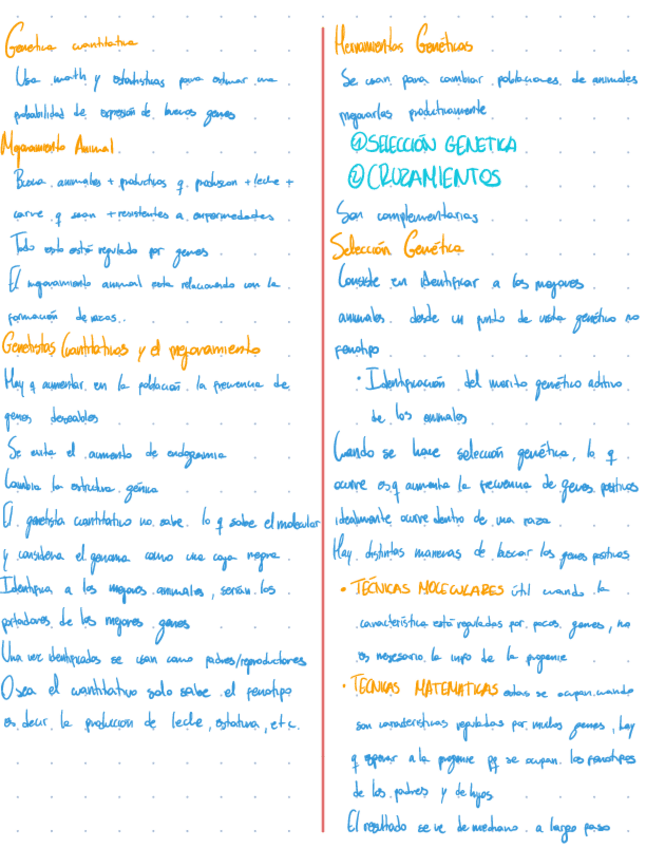 Genética cuantitativa
Usa math y estadísticas para estimar una
probabilidad de expresión de buenos genes
Mejoramiento Animal
Busca animales + productivos q produzcan + leche +
carne q sean + resistentes a enfermedades
Todo esto está regulado por genes
El mejoramiento animal esta relacionado con la
formación de razas.
Genetistas Cuantitativos y el mejoramiento
Hay q aumentar en la población la frecuencia de
genes deseables
Se evita el aumento de endogamia
Cambia la estructura génica
El genetista cuantitativo no sabe lo q sabe el molecular
y considera el genoma como una caja negra
Identifica a los mejores animales, serían los
portadores de los mejores genes
Una vez identificados se usan como padres/reproductores
O sea el cuantitativo solo sabe el fenotipo
es decir la producción de leche, estatura, etc.
Herramientas Genéticas
Se usan para cambiar poblaciones de animales
mejorarlas productivamente
① SELECCIÓN GENETICA
② CRUZAMIENTOS
Son complementarias
Selección Genética
Consiste en identificar a los mejores
animales desde un punto de vista genético no
fenotipo
• Identificación del merito genético aditivo
de los animales
Cuando se hace selección genética, lo q
ocurre es q aumenta la frecuencia de genes positivos
idealmente ocurre dentro de una raza
Hay distintas maneras de buscar los genes positivos
• TECNICAS MOLECULARES útil cuando la
característica está reguladas por pocos genes, no
es necesario la info de la progenie
• TECNICAS MATEMATICAS estas se ocupan cuando
son características reguladas por muchos genes, hay
q esperar a la progenie pq se ocupan los fenotipos
de los padres y de hijos
El resultado se ve de mediano a largo paso